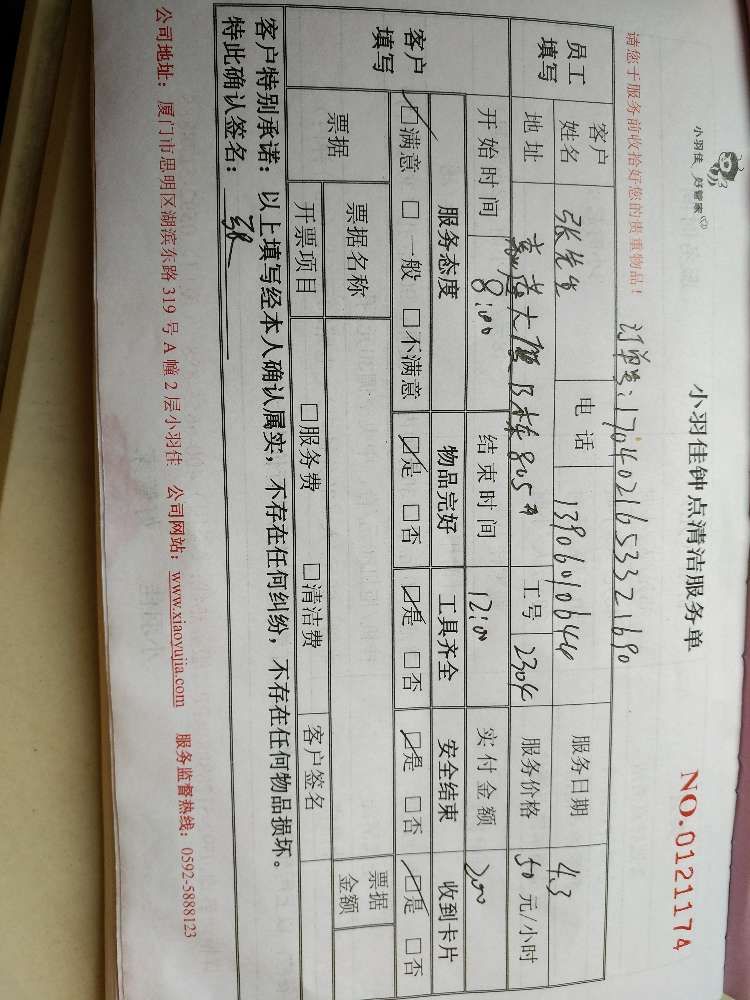 小羽佳 好管家
小羽佳钟点清洁服务单
NO.0121174
请您于服务前收拾好您的贵重物品！
订单号:17040216533321690
员工填写 客户姓名 张先生 电话 13906010644 服务日期 4.3
地址 大厦B栋805 工号 2304 服务价格 50 元/小时
开始时间 8:00 结束时间 12:00 实付金额 200
客户填写 服务态度 物品完好 工具齐全 安全结束 收到卡片
☑满意 □一般 □不满意 ☑是 □否 ☑是 □否 ☑是 □否 ☑是 □否
票据 票据名称 票据金额
开票项目 □服务费 □清洁费 客户签名
客户特别承诺：以上填写经本人确认属实，不存在任何纠纷，不存在任何物品损坏。
特此确认签名：张
公司地址：厦门市思明区湖滨东路 319 号 A 幢 2 层小羽佳 公司网站：www.xiaoyujia.com 服务监督热线：0592-5888123